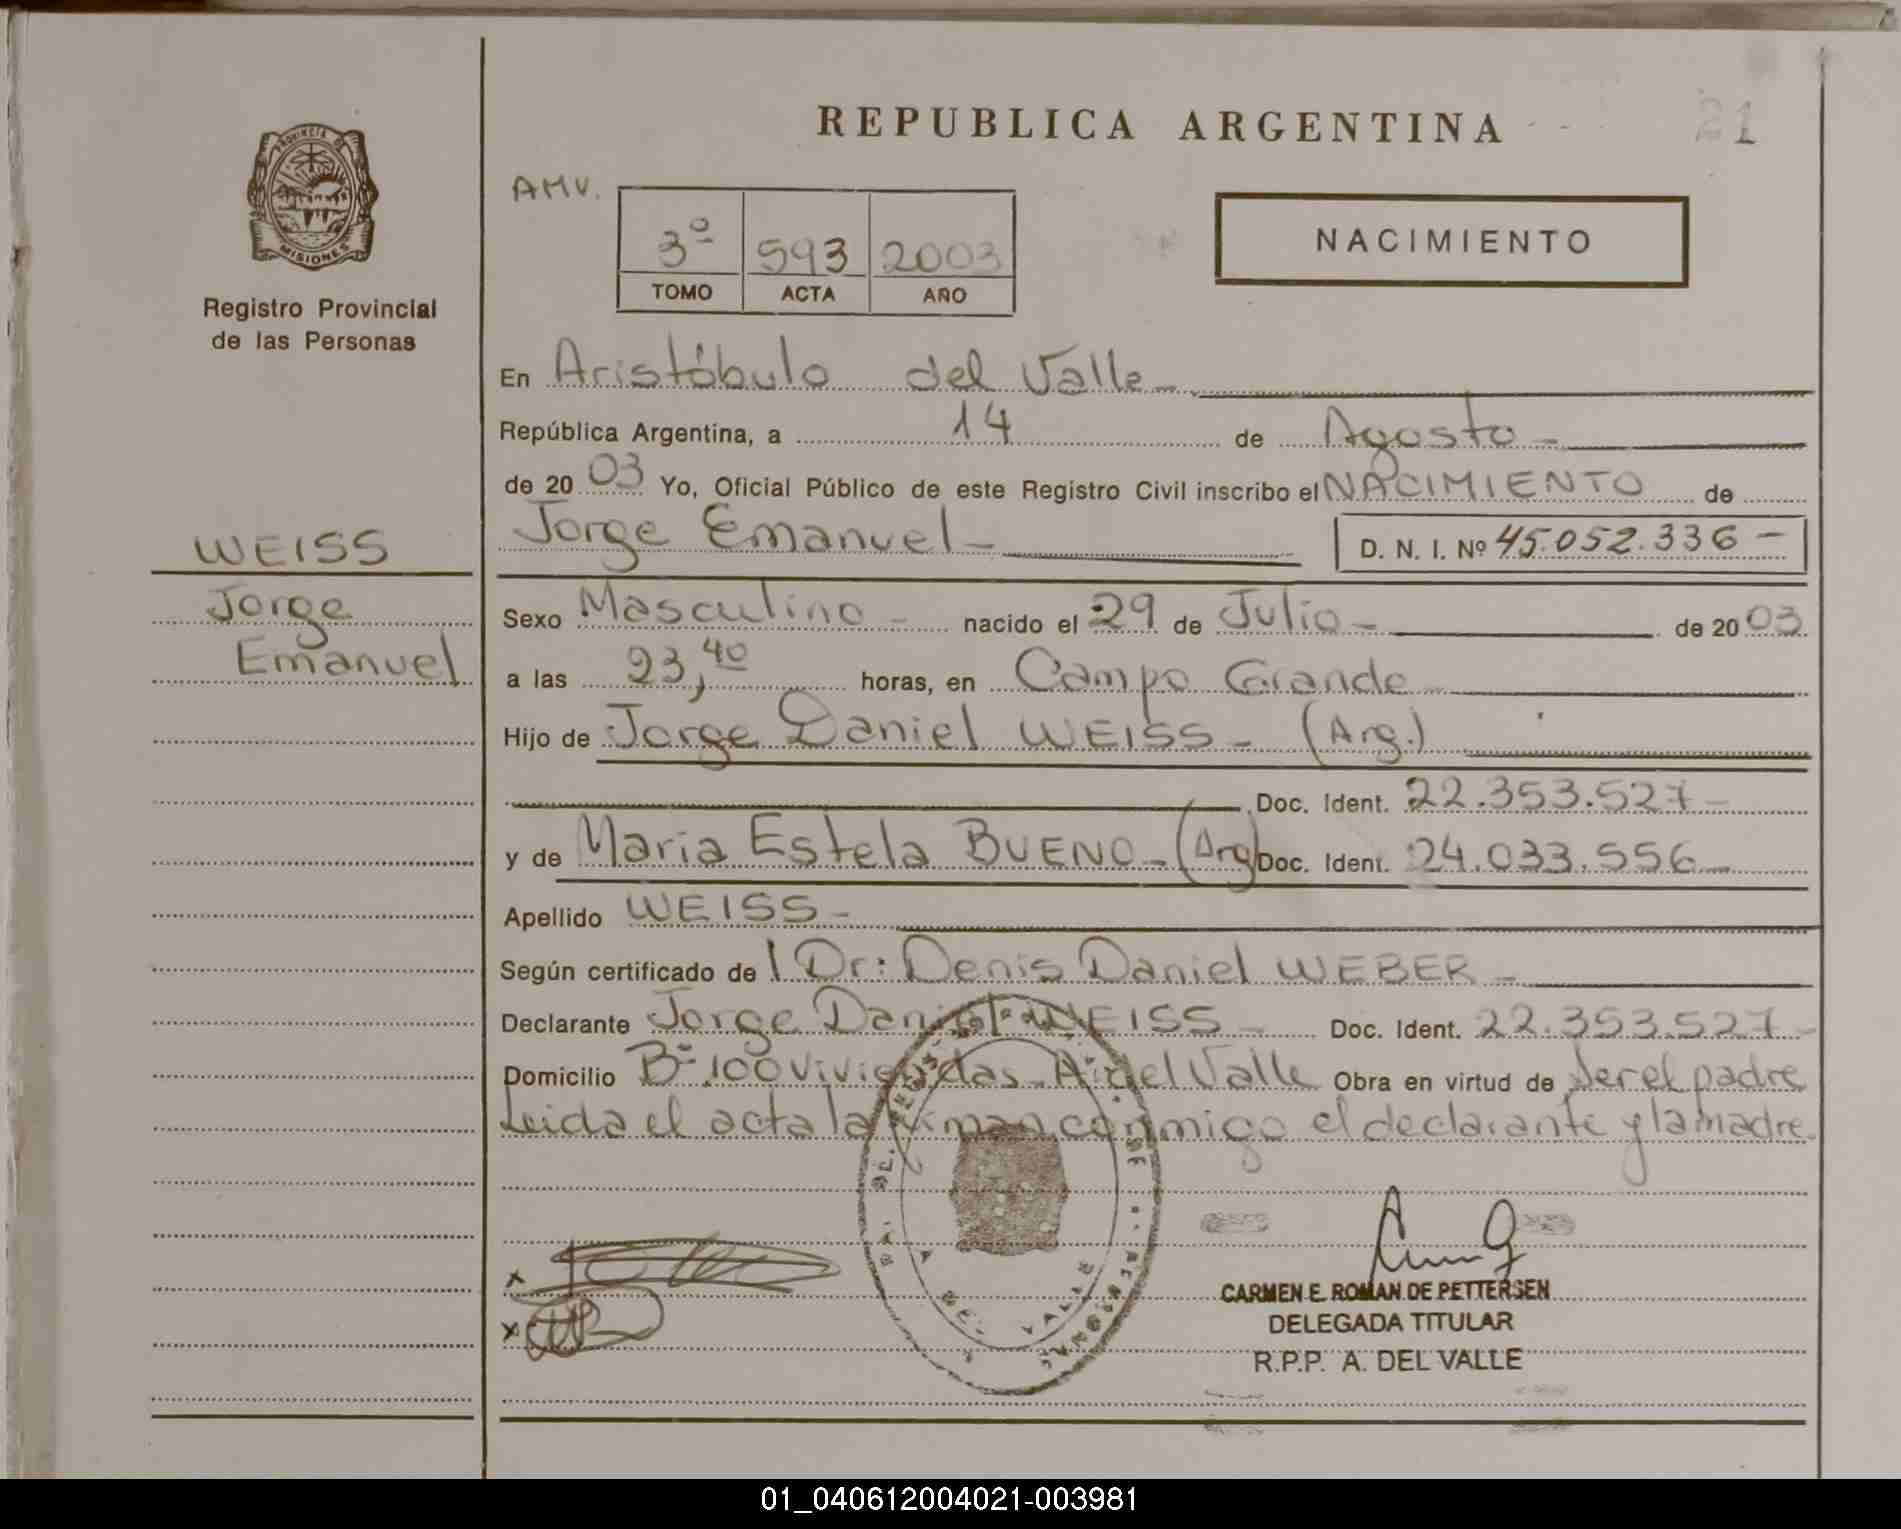 REPUBLICA ARGENTINA
21
PROVINCIA DE
MISIONES
Registro Provincial
de las Personas
AMV.
3º 593 2003
TOMO ACTA AÑO
NACIMIENTO
En Aristóbulo del Valle
República Argentina, a 14 de Agosto
de 20 03 Yo, Oficial Público de este Registro Civil inscribo el NACIMIENTO de
Jorge Emanuel D. N. I. Nº 45.052.336
WEISS
Jorge
Emanuel
Sexo Masculino nacido el 29 de Julio de 20 03
a las 23,40 horas, en Campo Grande
Hijo de Jorge Daniel WEISS (Arg.)
Doc. Ident. 22.353.527
y de Maria Estela BUENO (Arg) Doc. Ident. 24.033.556
Apellido WEISS
Según certificado de Dr: Denis Daniel WEBER
Declarante Jorge Daniel WEISS Doc. Ident. 22.353.527
Domicilio Bº 100 Viviendas A. del Valle Obra en virtud de Ser el padre
Leida el acta la firman conmigo el declarante y la madre.
CARMEN E. ROMAN DE PETTERSEN
DELEGADA TITULAR
R.P.P. A. DEL VALLE
01_040612004021-003981